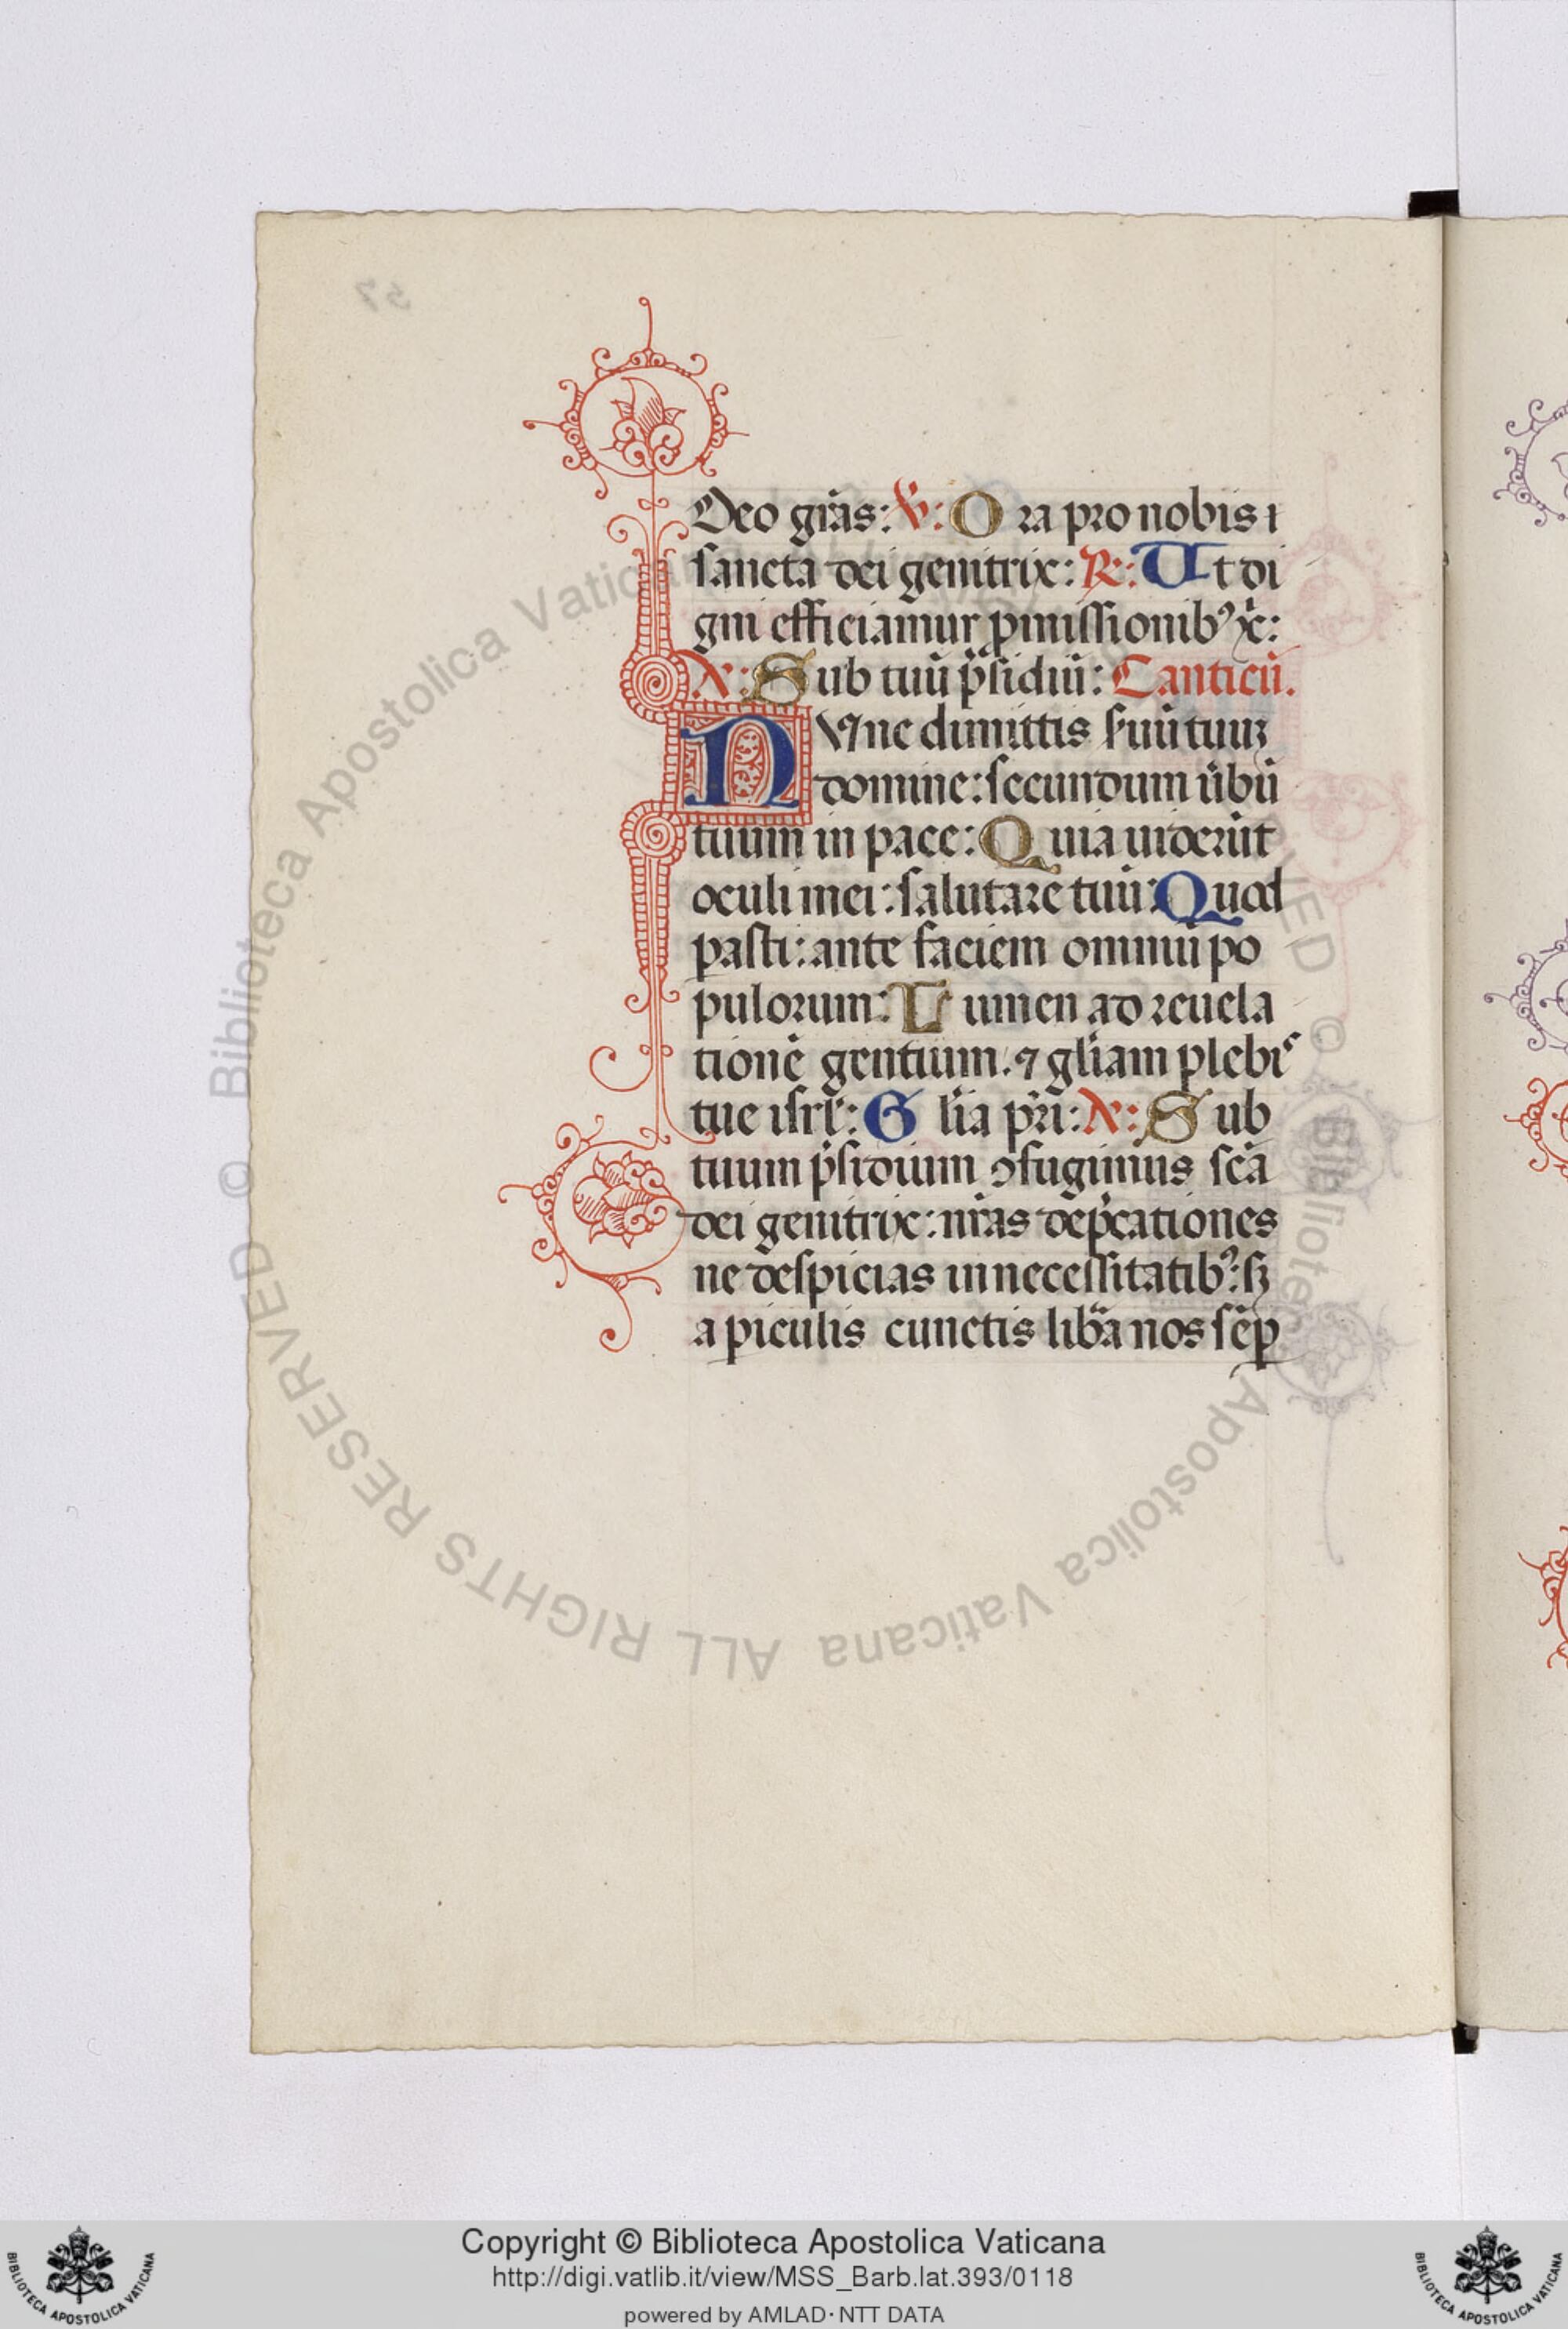 Deo gr̄as: ℣: Ora pro nobis ı
sancta dei genitrix: ℟: Ut di
gni efficiamur ꝓmissionibꝰ xͥ:
A: Sub tuū p̄sidiū: Canticū.
NVnc dimittis ẜuū tuuꝫ
domine: secundum űbū
tuum in pace: Quia uiderūt
oculi mei: salutare tuū: Quod
parasti: ante faciem omniū po
pulorum: Lumen ad reuela
tionē gentium. ⁊ gl̄iam plebis
tue isrl̄: Gl̄ia pr̄i: A: Sub
tuum p̄sidium ↄfugimus sc̄a
dei genitrix: nr̄as dep̄cationes
ne despicias in necessitatibꝰ: sꝫ
a ꝑiculis cunctis libͣa nos semꝑ
57
© Biblioteca Apostolica Vaticana
ALL RIGHTS RESERVED
Copyright © Biblioteca Apostolica Vaticana
http://digi.vatlib.it/view/MSS_Barb.lat.393/0118
powered by AMLAD·NTT DATA
BIBLIOTECA APOSTOLICA VATICANA
BIBLIOTECA APOSTOLICA VATICANA